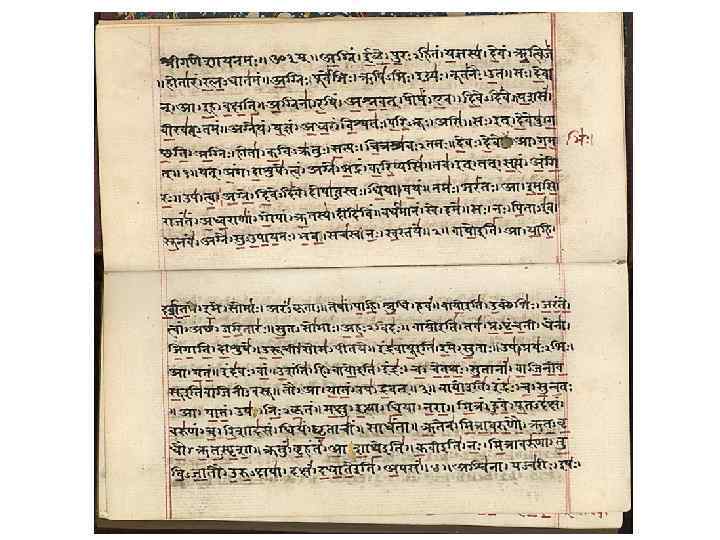 श्रीगणेशायनमः॥ॐ॥ अग्निं। ईळे। पुरःऽहितं। यज्ञस्य। देवं। ऋत्विजं
॥होतारं। रत्नऽधातमं॥ अग्निः। पूर्वेभिः। ऋषिऽभिः। ईड्यः। नूतनैः। उत। सः। देवा
न्। आ। इह। वक्षति॥ अग्निना। रयिं। अश्नवत्। पोषं। एव। दिवेऽदिवे। यशसं
वीरवत्ऽतमं॥ अग्ने। यं। यज्ञं। अध्वरं। विश्वतः। परिऽभूः। असि। सः। इत्। देवेषु। ग
च्छति॥ अग्निः। होता। कविऽक्रतुः। सत्यः। चित्रश्रवःऽतमः। देवः। देवे। आ। गम
भिः।
त्॥१॥ यत्। अंग। दाशुषे। त्वं। अग्ने। भद्रं। करिष्यसि। तव। इत्। तत्। सत्यं। अंगि
रः॥ उप। त्वा। अग्ने। दिवेऽदिवे। दोषाऽवस्तः। धिया। वयं। नमः। भरंतः। आ। इमसि
राजंतं। अध्वराणां। गोपां। ऋतस्य। दीदिविं। वर्धमानं। स्वे। दमे॥ सः। नः। पिताऽइव
सूनवे। अग्ने। सुऽउपायनः। भव। सचस्व। नः। स्वस्तये॥२॥ वायो इति। आ। याहि।
दर्शत। इमे। सोमाः। अरंऽकृताः। तेषां। पाहि। श्रुधि। हवं॥ वायो इति। उक्थेभिः। जरंते
त्वां। अच्छ। जरितारः॥ सुतऽसोमाः। अहःऽविदः॥ वायो इति। तव। प्रऽपृंचती। धेना
जिगाति। दाशुषे। उरूची। सोमऽपीतये॥ इंद्रवायू इति। इमे। सुताः। उप। प्रयःऽभिः।
आ। गतं। इंदवः। वां। उशंति। हि। वायो इति। इंद्रः। च। चेतथः। सुतानां। वाजिनीव
सू इति वाजिनीऽवसू। तौ। आ। यातं। उप। द्रवत्॥३॥ वायो इति। इंद्रः। च। सुन्वतः
॥ आ। यातं। उप। निःऽकृतं। मक्षु। इत्था। धिया। नरा॥ मित्रं। हुवे। पूतऽदक्षं
वरुणं। च। रिशादसं। धियं। घृताचीं। साधंता॥ ऋतेन। मित्रावरुणौ। ऋतऽवृ
धौ। ऋतऽस्पृशा। क्रतुं। बृहंतं। आशाथे इति। कवी इति। नः। मित्रावरुणा। तु
विऽजातौ। उरुऽक्षया। दक्षं। दधाते इति। अपसं॥४॥ अश्विना। यज्वरीः। इषः।